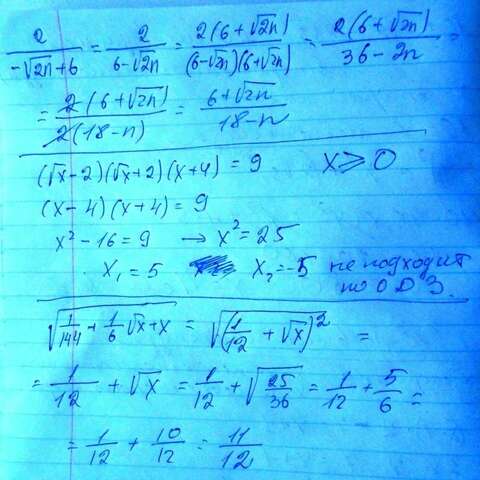 2/(-√2n+6) = 2/(6-√2n) = 2(6+√2n)/((6-√2n)(6+√2n)) = 2(6+√2n)/(36-2n) =
= 2(6+√2n)/(2(18-n)) = (6+√2n)/(18-n)
(√x-2)(√x+2)(x+4) = 9 x ⩾ 0
(x-4)(x+4) = 9
x²-16 = 9 → x² = 25
x₁ = 5 x₂ = -5 не подходит
по ОДЗ.
√(1/144 + 1/6 √x + x) = √(1/12 + √x)² =
= 1/12 + √x = 1/12 + √(25/36) = 1/12 + 5/6 =
= 1/12 + 10/12 = 11/12